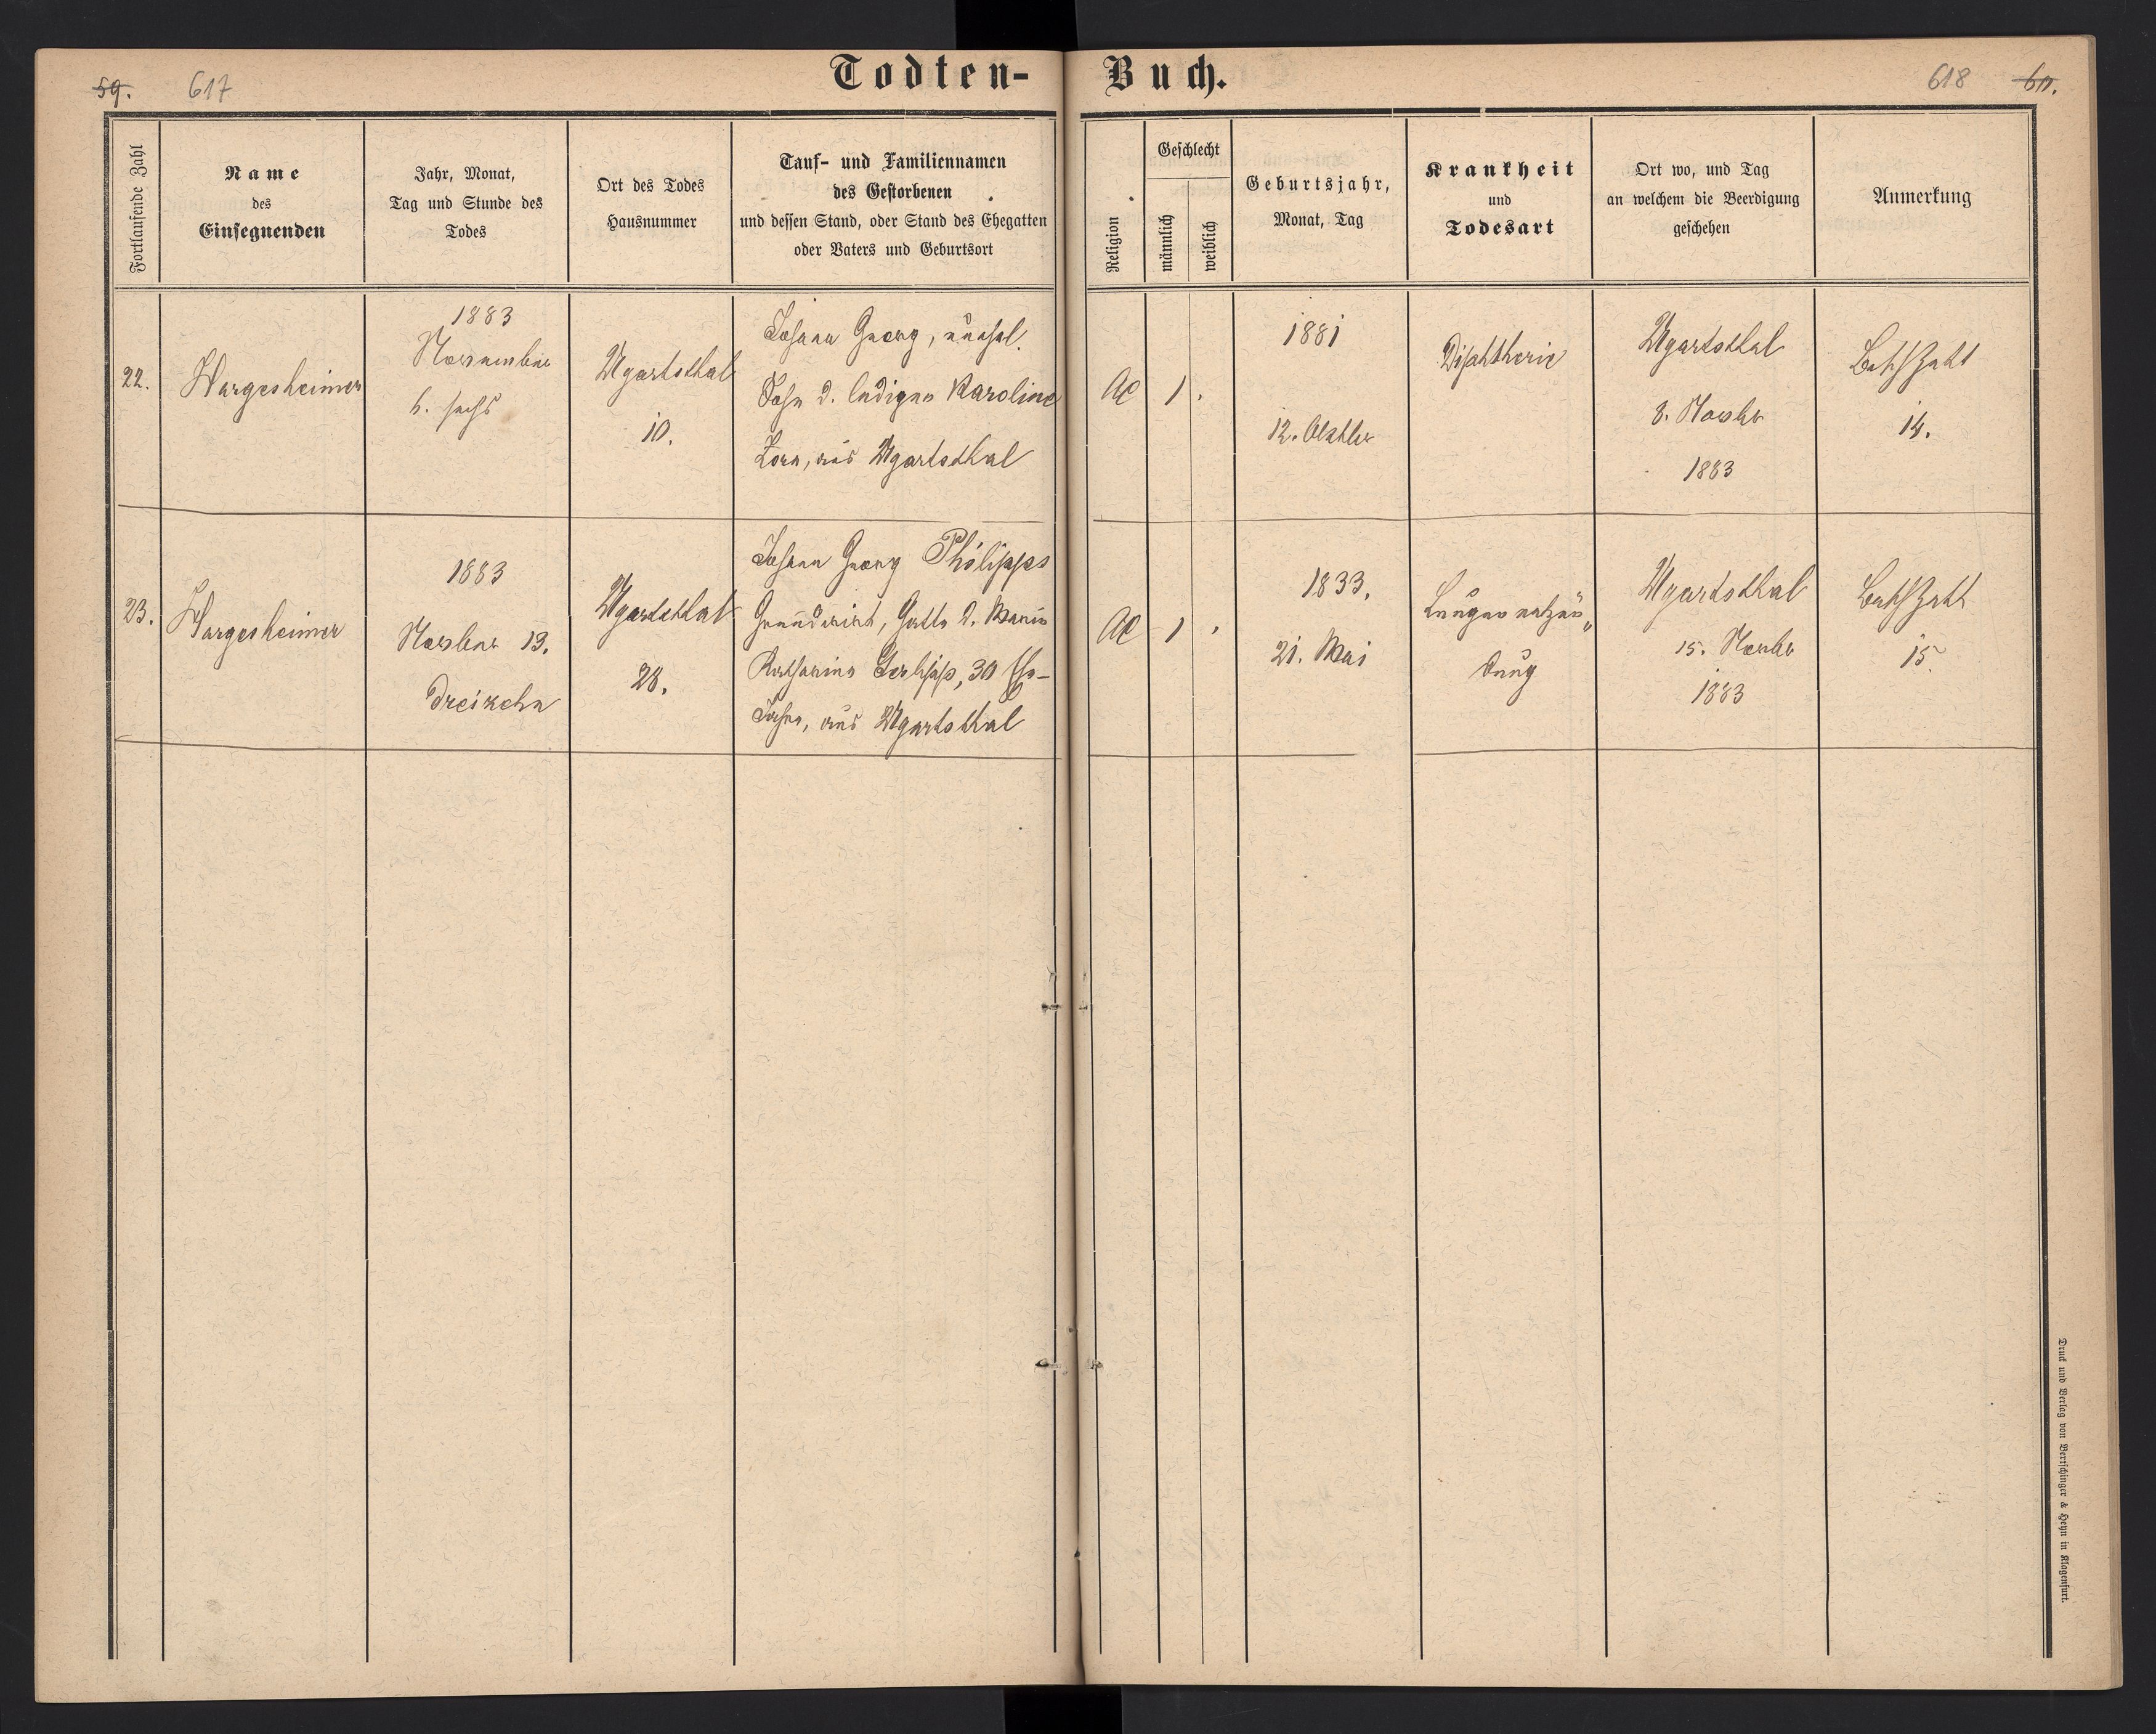 Todten-Buch.
59. 617
618 60.
Fortlaufende Zahl
Name
des
Einsegnenden
Jahr, Monat,
Tag und Stunde des
Todes
Ort des Todes
Hausnummer
Tauf- und Familiennamen
des Gestorbenen
und dessen Stand, oder Stand des Ehegatten
oder Vaters und Geburtsort
Religion
Geschlecht
männlich
weiblich
Geburtsjahr,
Monat, Tag
Krankheit
und
Todesart
Ort wo, und Tag
an welchem die Beerdigung
geschehen
Anmerkung
22.
Hargesheimer
1883
November
6. sechs
Ugartsthal
10.
Johann Georg, unehel.
Sohn d. ledigen Karoline
Zorn, aus Ugartsthal
AC
1
.
1881
12. Oktbr
Diphtherie
Ugartsthal
8. Novbr
1883
14.
23.
Hargesheimer
1883
Novber 13.
dreizehn
Ugartsthal
28.
Johann Georg Philipps
Grundwirt, Gatte d. Maria
Katharina 30 Ehe-
Jahre, aus Ugartsthal
AC
1
.
1833.
21. Mai
Lungenentzün„
dung
Ugartsthal
15. Novbr
1883
15.
Druck und Verlag von Bertschinger & Heyn in Klagenfurt.